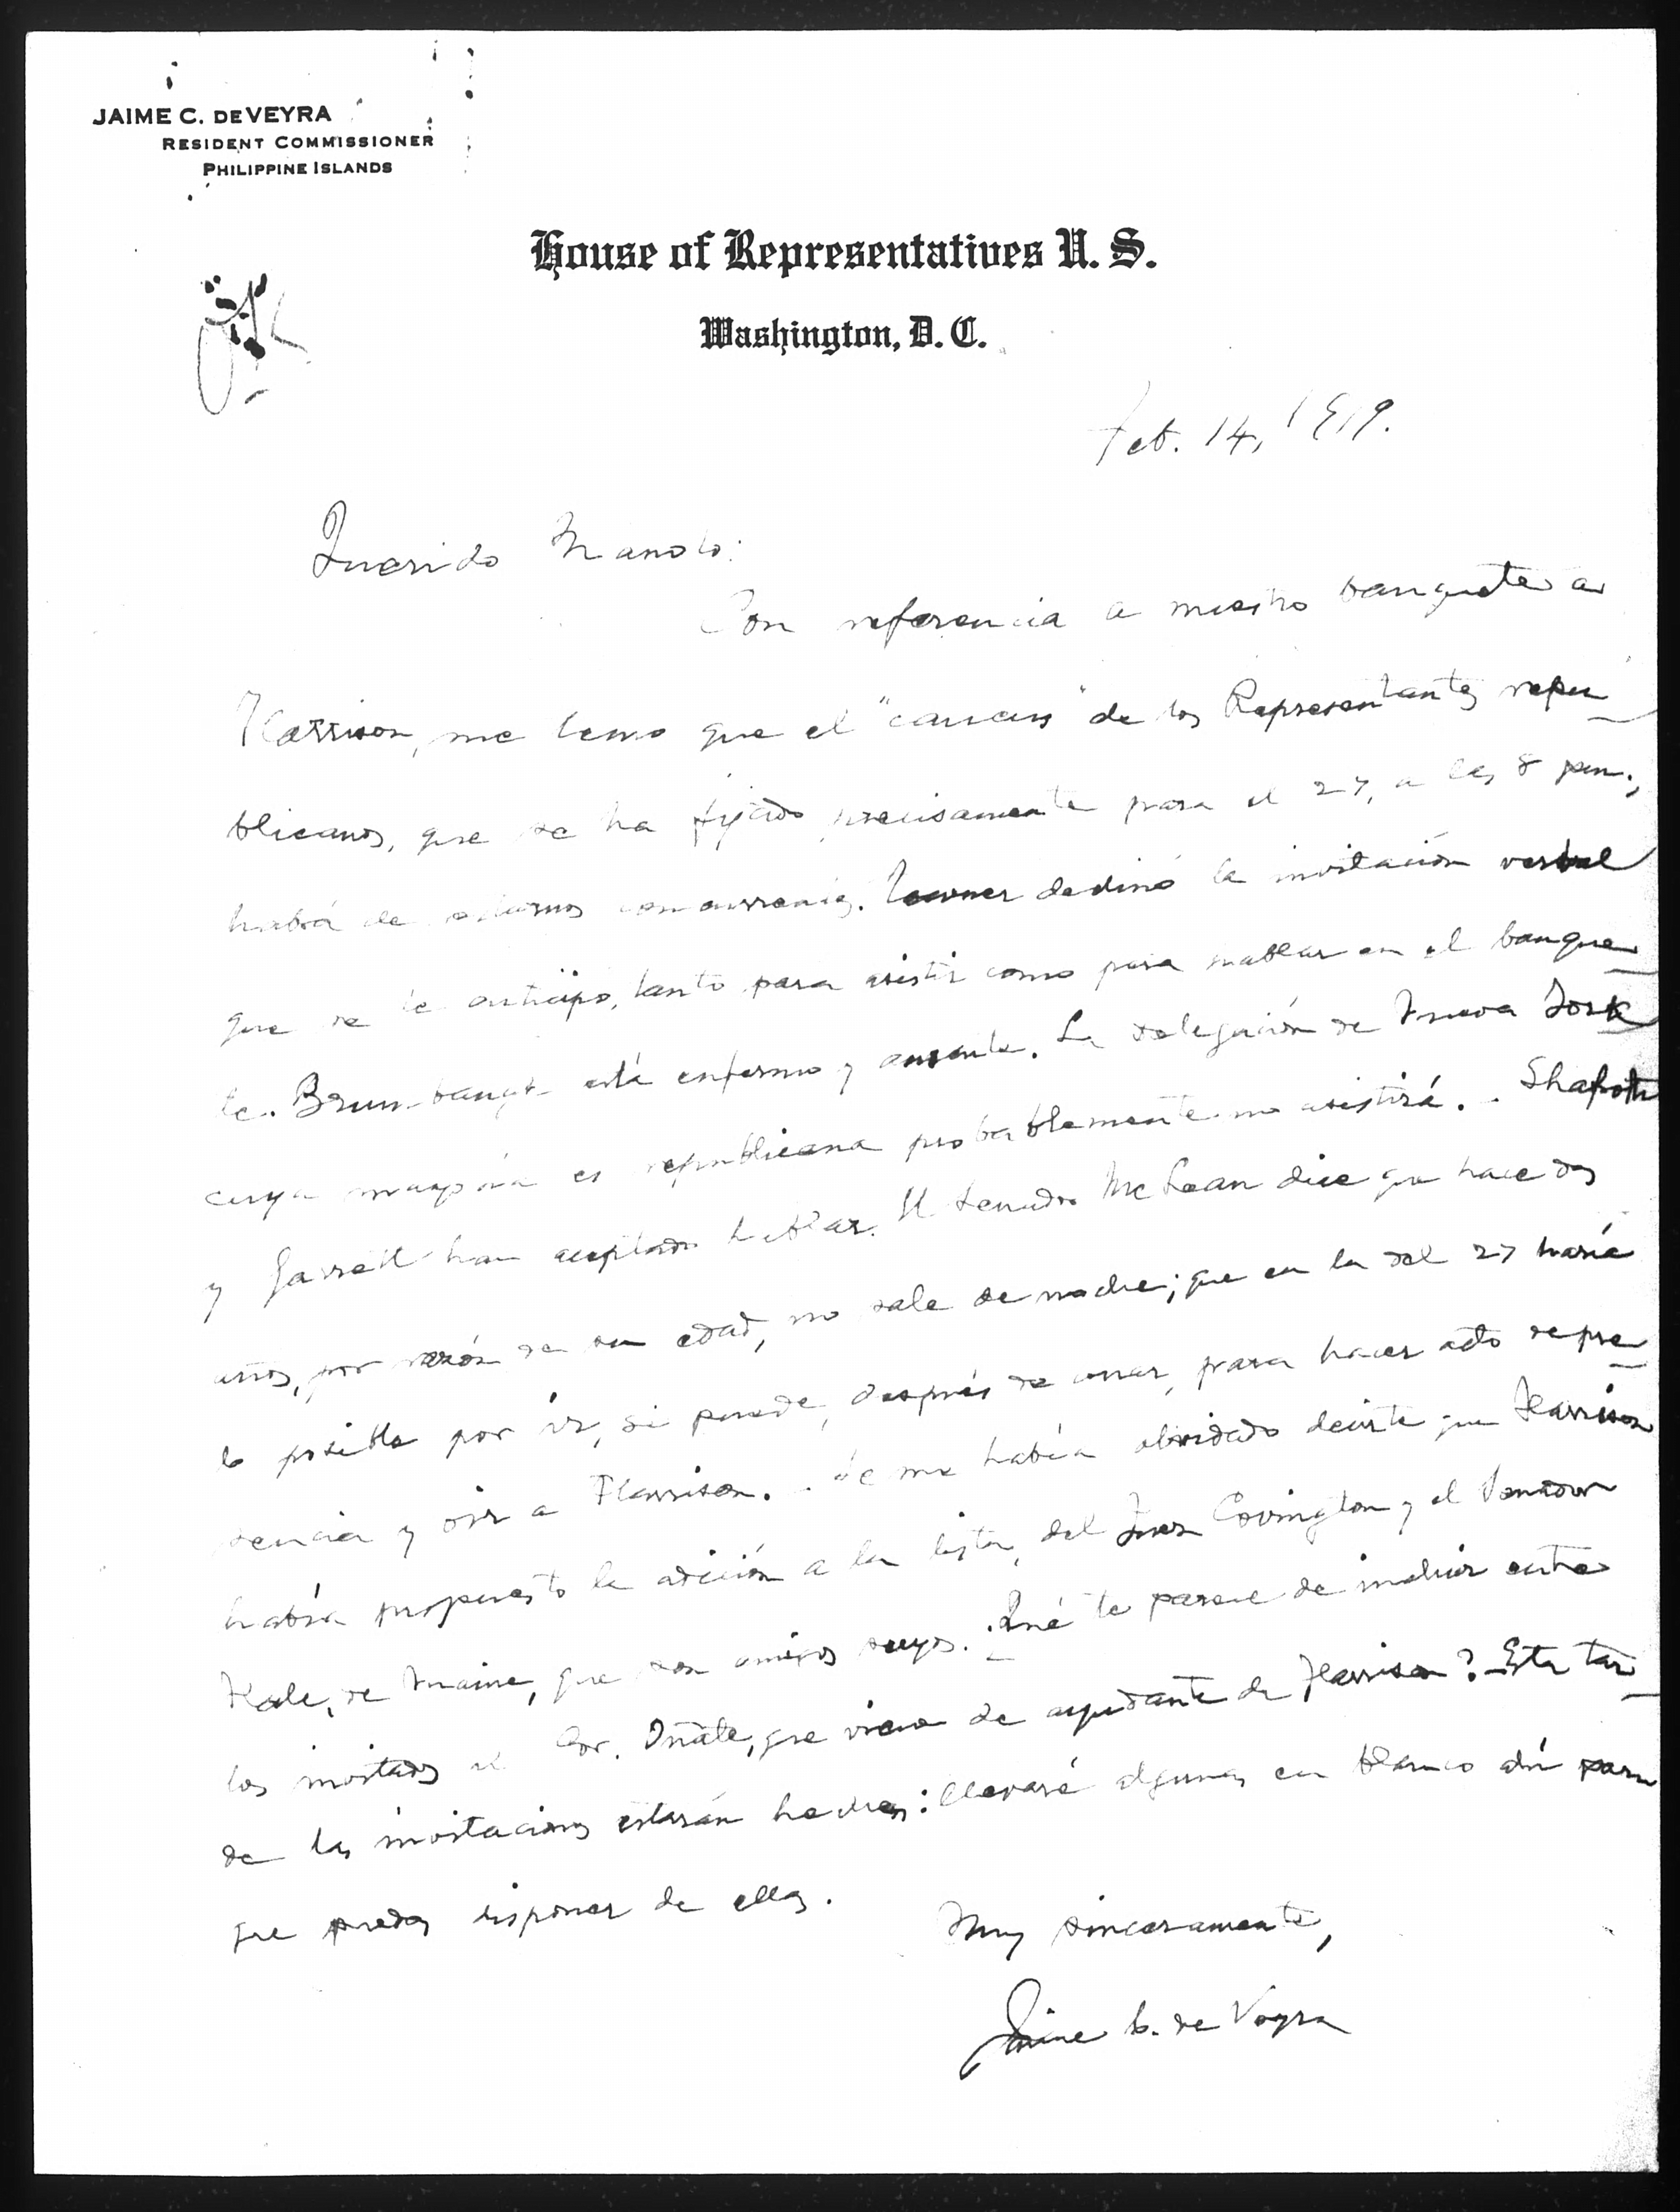 JAIME C. DE VEYRA
RESIDENT COMMISSIONER
PHILIPPINE ISLANDS
House of Representatives U. S.
Washington, D. C.
Feb. 14, 1919.
Querido Manolo:
Con referencia a nuestro banquete a
Harrison, me temo que el "caucus" de los Representantes repu-
blicanos, que se ha fijado precisamente para el 27, a las 8 pm.,
habrá de concurrencia. declinó la invitación verbal
que se le anticipó, tanto para asistir como para hablar en el banque-
te. Brumbaugh está enfermo y ausente. La delegación de Nueva York
cuya mayoría es republicana probablemente no asistirá. - Shafroth
y Garrett han aceptado hablar. El Senador McLean dice que hace dos
años, por razón de su edad, no sale de noche; que en la del 27 haría
lo posible por ir, si puede, después de cenar, para hacer acto de pre-
sencia y oir a Harrison. - Se me había olvidado decirte que Harrison
había propuesto la adición a la lista, del Juez Covington y el Senador
Hale, de Maine, que son amigos suyos. ¿Qué te parece de incluir entre
los invitados al Cor. Oñate, que viene de ayudante de Harrison? - Esta tar-
de las invitaciones estarán hechas: llevaré algunas en blanco ahí para
que puedas disponer de ellas.
Muy sinceramente,
Jaime C. de Veyra